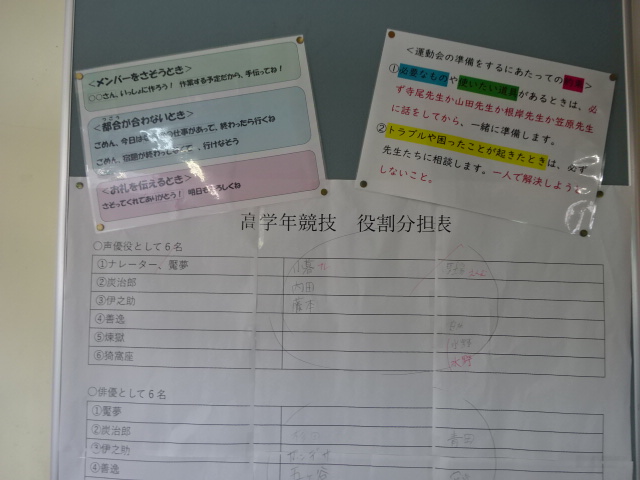 ＜メンバーをさそうとき＞
○○さん、いっしょに作ろう！ 作業する予定だから、手伝ってね！
＜都合が合わないとき＞
ごめん、今日は の仕事があって、終わったら行くね
ごめん、宿題が終わって 、行けなそう
＜お礼を伝えるとき＞
さそってくれてありがとう！ 明日もよろしくね
＜運動会の準備をするにあたっての約束＞
①必要なものや使いたい道具があるときは、必
ず寺尾先生か山田先生か根岸先生か笠原先生
に話をしてから、一緒に準備します。
②トラブルや困ったことが起きたときは、必ず
先生たちに相談します。一人で解決しようと
しないこと。
高学年競技 役割分担表
○声優役として６名
①ナレーター、魘夢
②炭治郎 内田
③伊之助
④善逸
⑤煉獄
⑥猗窩座 水野
○俳優として６名
①魘夢
②炭治郎
③伊之助
④善逸